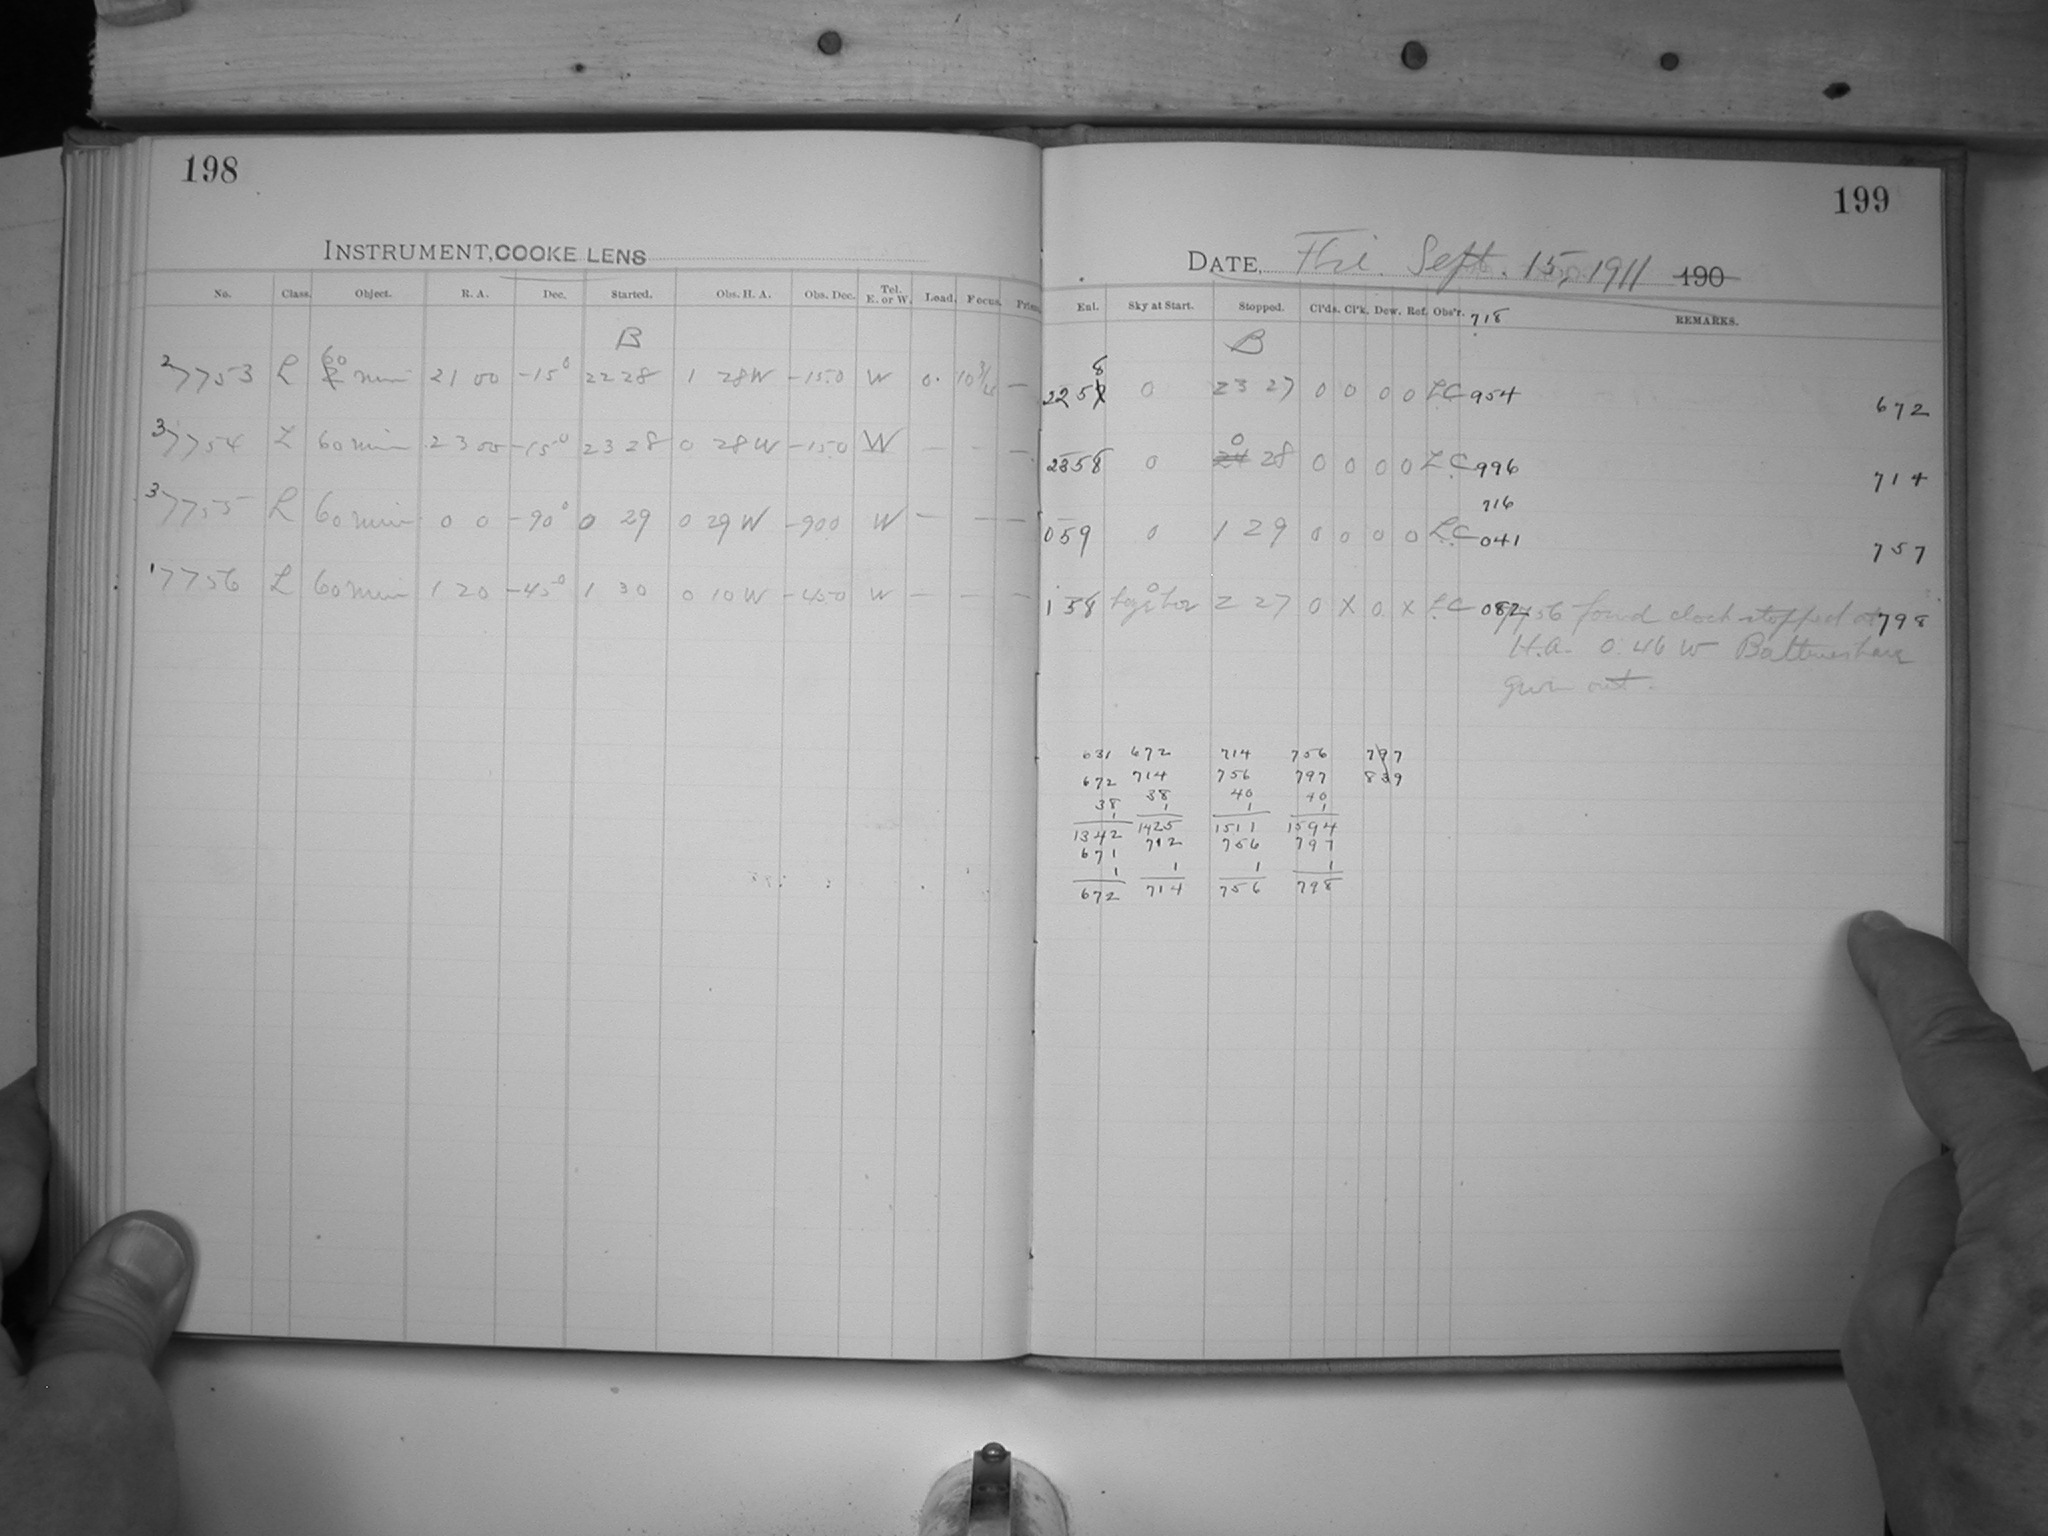 198
INSTRUMENT, COOKE LENS
No. Class. Object. R. A. Dec. Started. Obs. H. A. Obs. Dec. Tel. E. or W. Load. Focus.
B
2 7753 L 60 min 21 00 -15° 22 28 1 28 W -15.0 W 0. —
3 7754 L 60 min 23 00 -15° 23 28 0 28 W -15.0 W — — —
3 7755 L 60 min 0 0 -90° 0 29 0 29 W -90.0 W — — —
1 7756 L 60 min 1 20 -45° 1 30 0 10 W -45.0 W — — —
199
DATE, Fri. Sept. 15, 1911 190
Enl. Sky at Start. Stopped. Cl'ds. Cl'k. Dew. Ref. Obs'r. 718 REMARKS.
B
8
225 0 23 27 0 0 0 0 L.C. 954 672
0
2358 0 24 28 0 0 0 0 L.C. 996 714
716
059 0 1 29 0 0 0 0 L.C. 041 757
158 0 2 27 0 X 0 X L.C. 082 7756 found clock stopped at 798
H.A. 0.46 W
out.
631 672 714 756 797
672 714 756 797 839
38 38 40 40
1 1 1 1
1342 1425 1511 1594
671 712 756 797
1 1 1 1
672 714 756 798